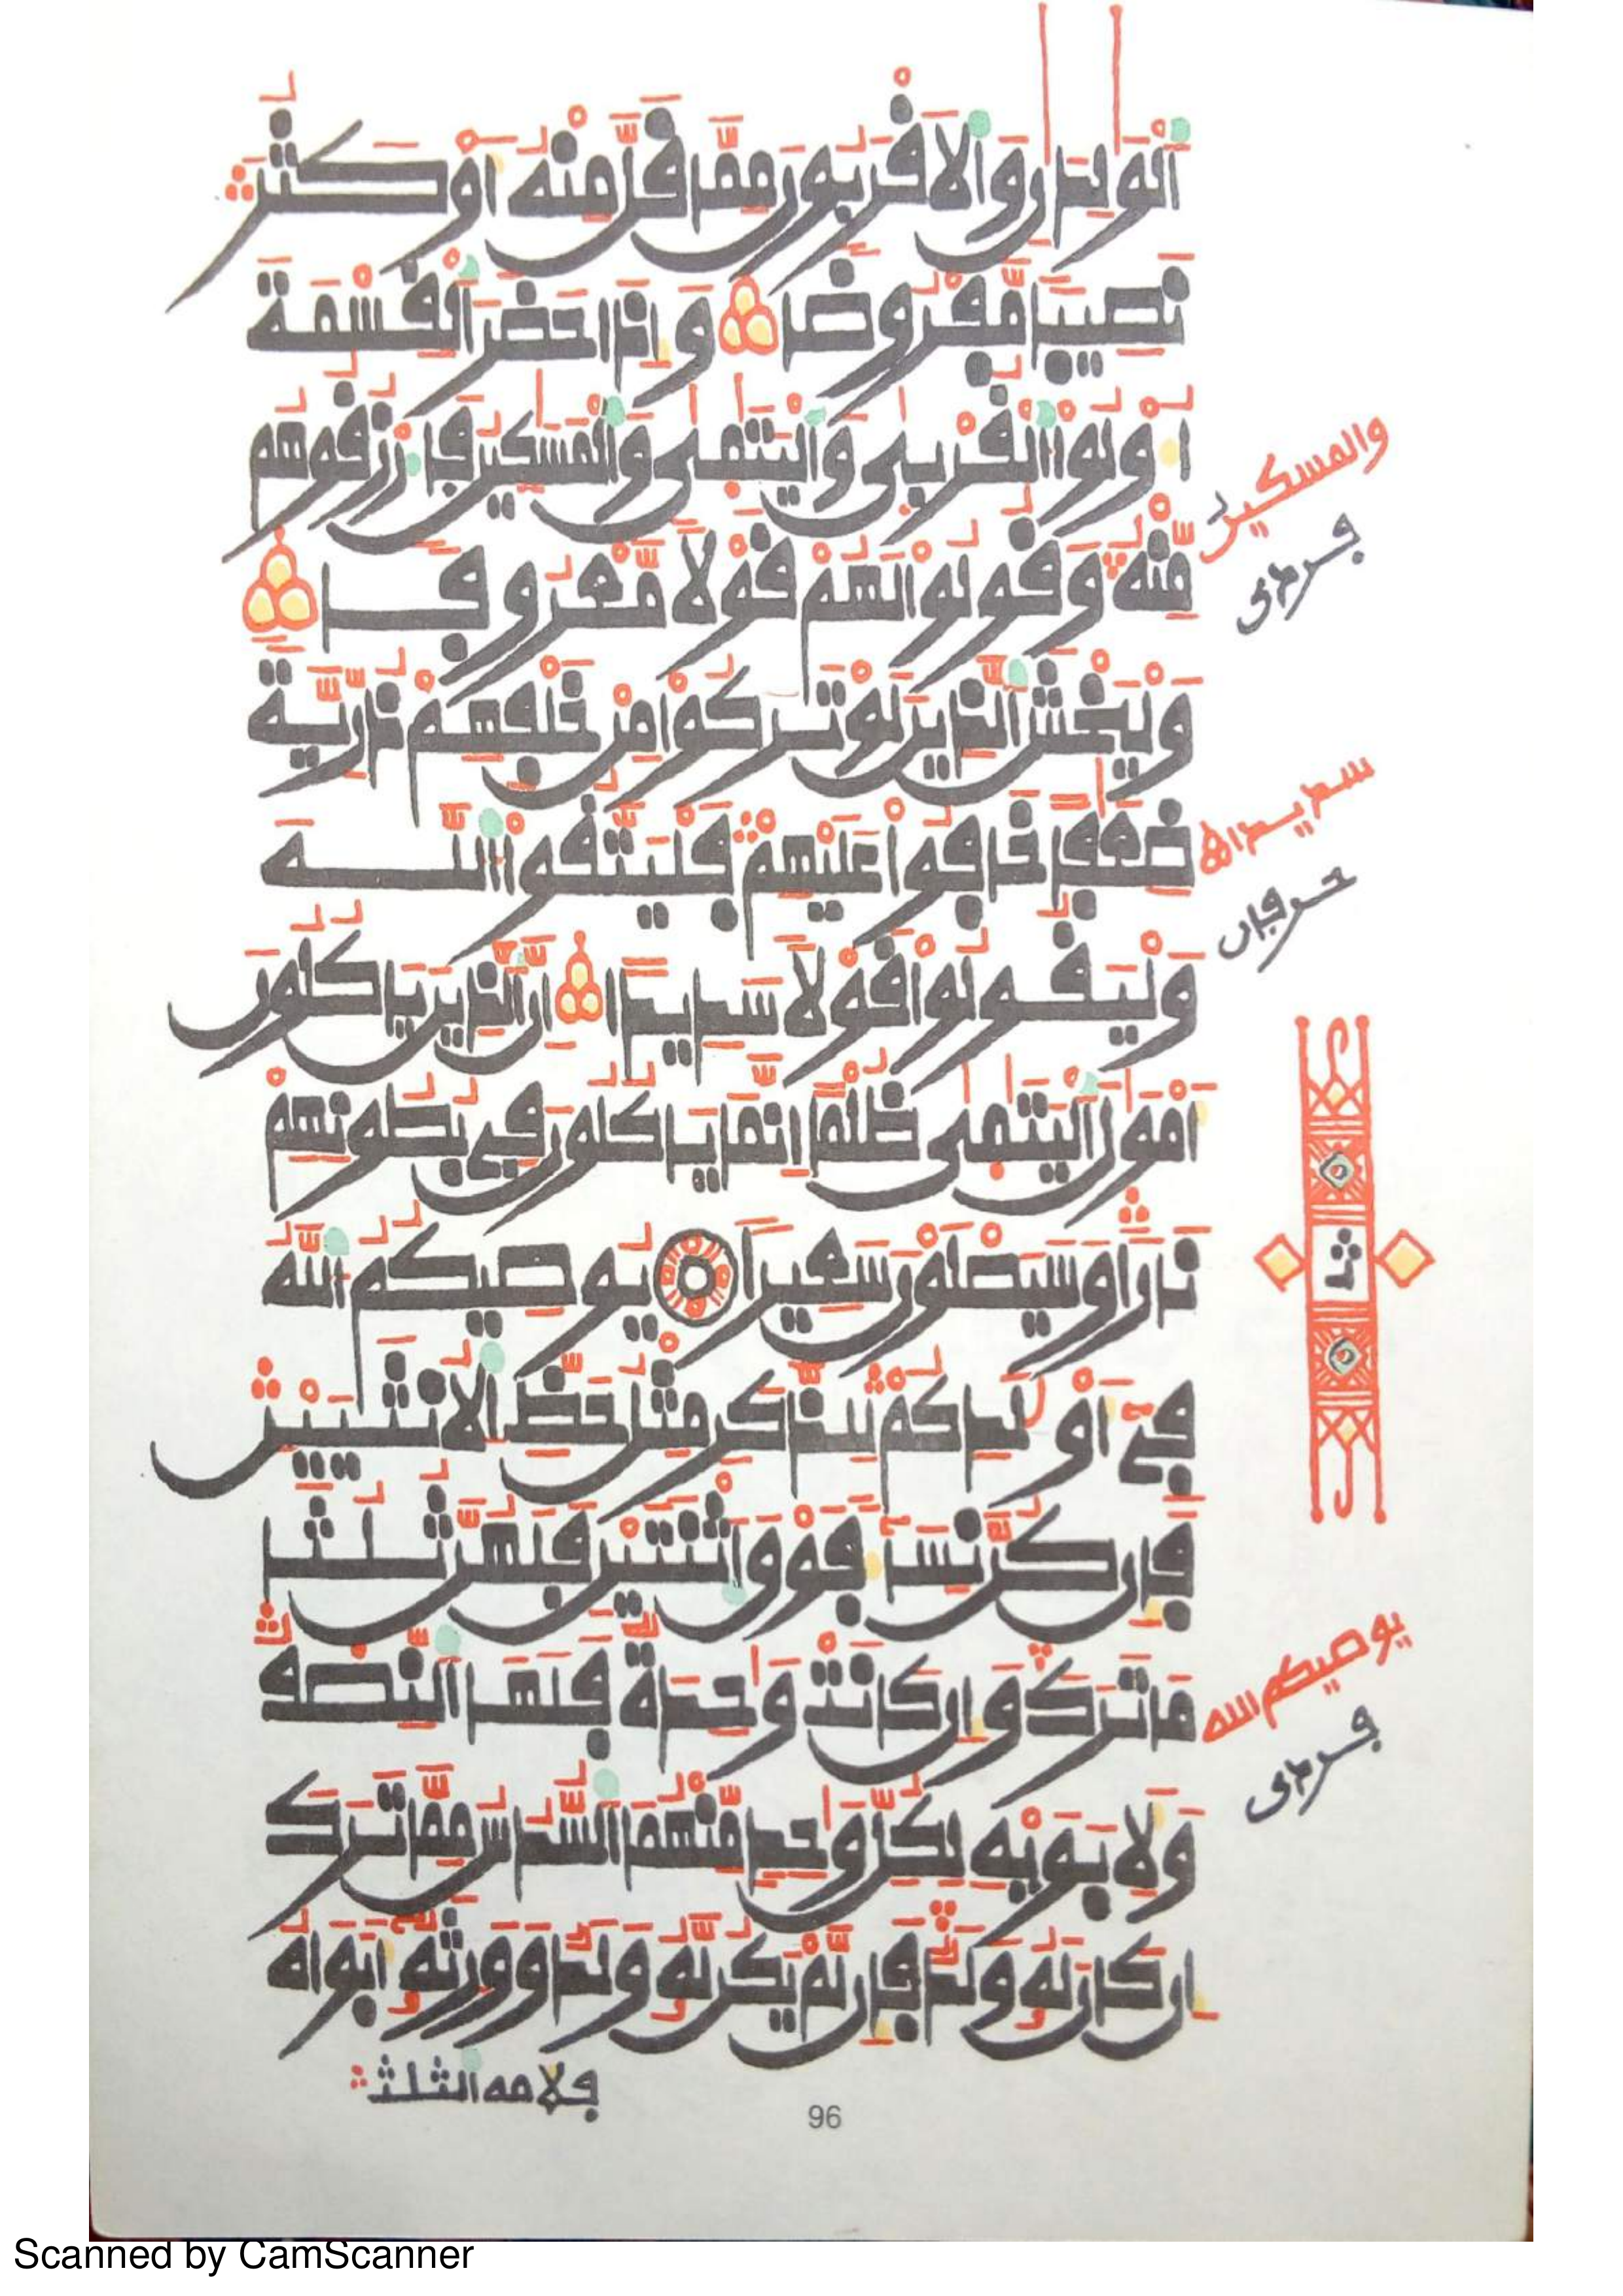 اَ۬لْوَٰلِدَٰنِ وَالَاقْرَبُونَ مِمَّا قَلَّ مِنْهُ أَوْ كَثُرَ
نَصِيباً مَّفْرُوضاً وَإِذَا حَضَرَ اَ۬لْقِسْمَةَ
أُوْلُواْ اُ۬لْقُرْبَىٰ وَالْيَتَٰمَىٰ وَالْمَسَٰكِينُ فَارْزُقُوهُم
مِّنْهُ وَقُولُواْ لَهُمْ قَوْلاً مَّعْرُوفاً
وَلْيَخْشَ اَ۬لذِينَ لَوْ تَرَكُواْ مِنْ خَلْفِهِمْ ذُرِّيَّةً
ضِعَٰفاً خَافُواْ عَلَيْهِمْ فَلْيَتَّقُواْ اُ۬للَّهَ
وَلْيَقُولُواْ قَوْلاً سَدِيداً إِنَّ اَ۬لذِينَ يَاكُلُونَ
أَمْوَٰلَ اَ۬لْيَتَٰمَىٰ ظُلْماً اِنَّمَا يَاكُلُونَ فِي بُطُونِهِمْ
نَاراً وَسَيَصْلَوْنَ سَعِيراً يُوصِيكُمُ اُ۬للَّهُ
فِي أَوْلَٰدِكُمْ لِلذَّكَرِ مِثْلُ حَظِّ اِ۬لُانثَيَيْنِ
فَإِن كُنَّ نِسَآءً فَوْقَ اَ۪ثْنَتَيْنِ فَلَهُنَّ ثُلُثَا
مَا تَرَكَ وَإِن كَانَتْ وَٰحِدَةٌ فَلَهَا اَ۬لنِّصْفُ
وَلِأَبَوَيْهِ لِكُلِّ وَٰحِدٍ مِّنْهُمَا اَ۬لسُّدُسُ مِمَّا تَرَكَ
إِن كَانَ لَهُۥ وَلَدٌ فَإِن لَّمْ يَكُن لَّهُۥ وَلَدٌ وَوَرِثَهُۥ أَبَوَاهُ
فلامه الثلث
والمسكين
فرمى
سديدا
حرفان
ثمن
يوصيكم الله
فرمى
96
Scanned by CamScanner